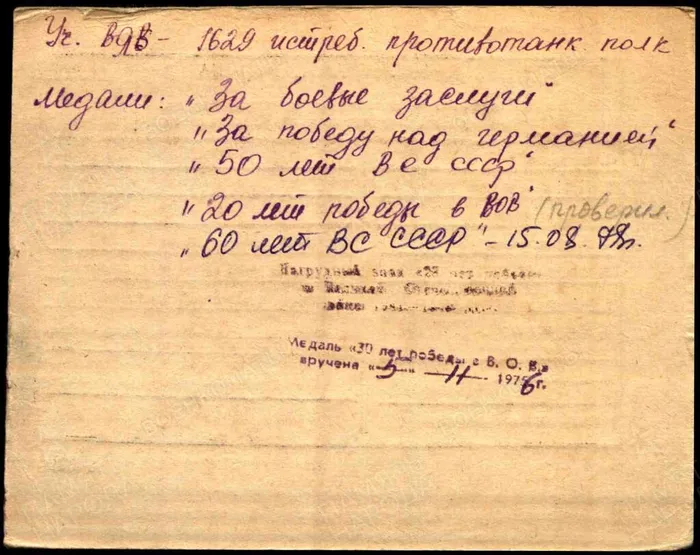 Уч. ВОВ - 1629 истреб. противотанк. полк
Медали: "За боевые заслуги"
"За победу над германией"
"50 лет ВС СССР"
"20 лет победы в ВОВ" (проверил.)
"60 лет ВС СССР" - 15.08.78г.
Нагрудный знак «25 лет победы
в Великой Отечественной
войне
Медаль «30 лет победы в В. О. В.»
вручена «5» 11 1976 г.